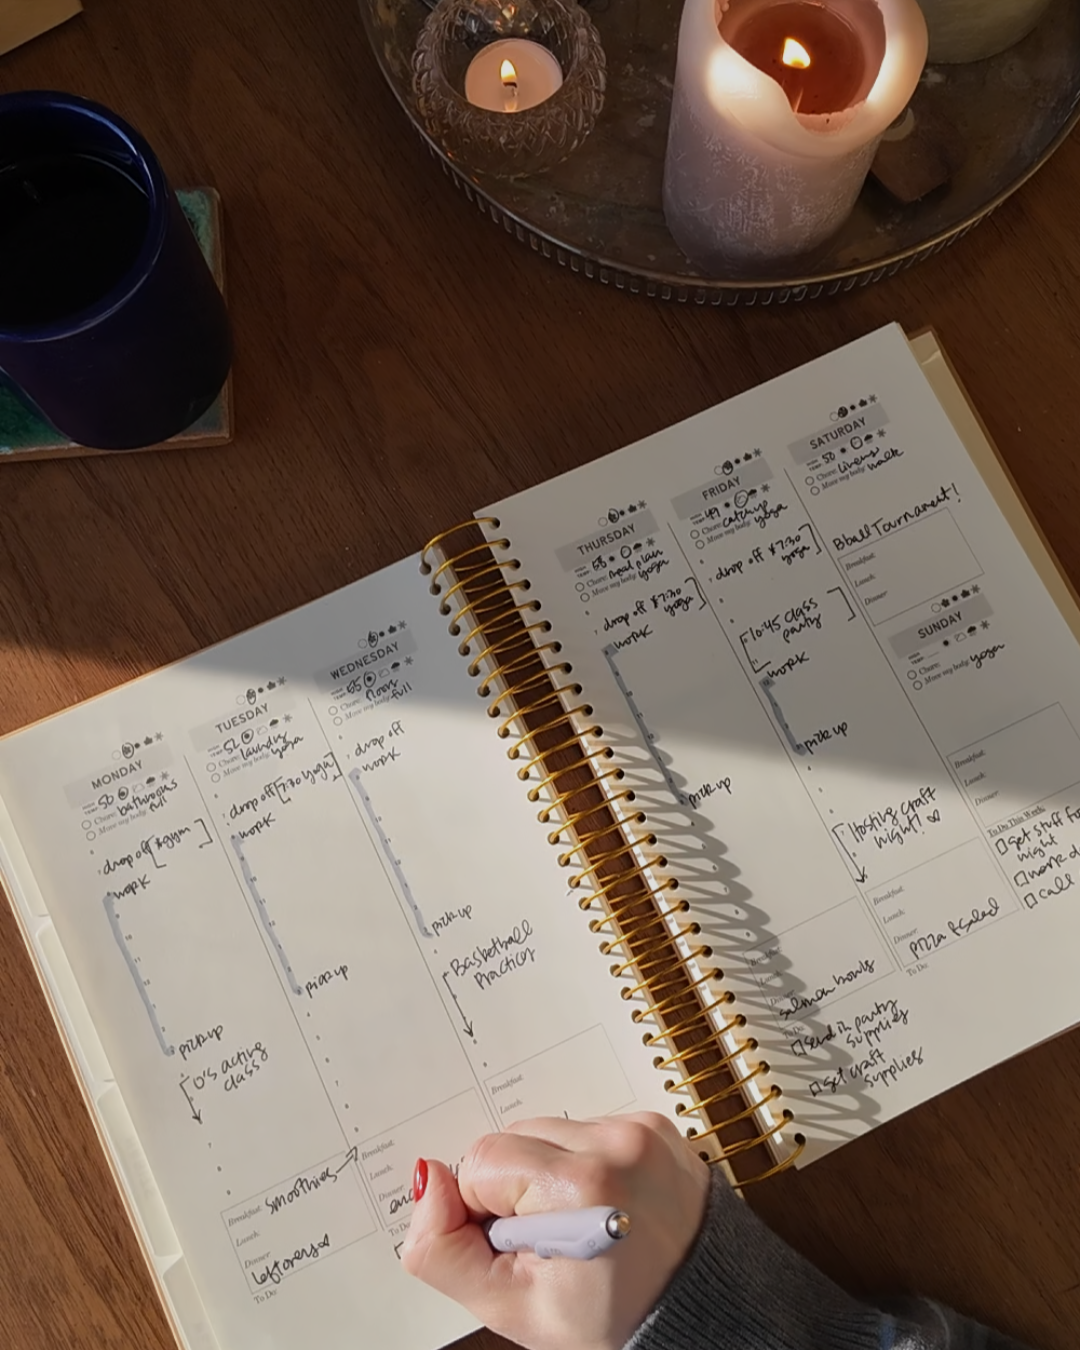 MONDAY
50
Chore: bathrooms
Move my body: full
drop off & gym
work
pick up
O's active
class
Breakfast: smoothies
Lunch:
Dinner:
leftovers
To Do
TUESDAY
52
Chore: laundry
Move my body: yoga
drop off 7:30 yoga
work
pick up
Breakfast:
Lunch:
Dinner:
To Do
WEDNESDAY
Chore: floors
Move my body: full
drop off
work
pick up
Basketball
Practice
Breakfast:
Lunch:
THURSDAY
68
Chore: meal plan
Move my body: yoga
drop off & 7:30
yoga
work
pick up
salmon bowls
To Do
send in party
supplies
get craft
supplies
FRIDAY
49
Chore: catch up
Move my body: yoga
drop off & 7:30
yoga
10:45 class
party
work
pick up
Hosting craft
night!
Breakfast:
Lunch:
Dinner:
pizza & salad
To Do
SATURDAY
50
Chore: linens
Move my body: walk
Bball Tournament!
Breakfast:
Lunch:
Dinner:
SUNDAY
Chore:
Move my body: yoga
Breakfast:
Lunch:
Dinner:
To Do This Week:
get stuff for
night
work
call